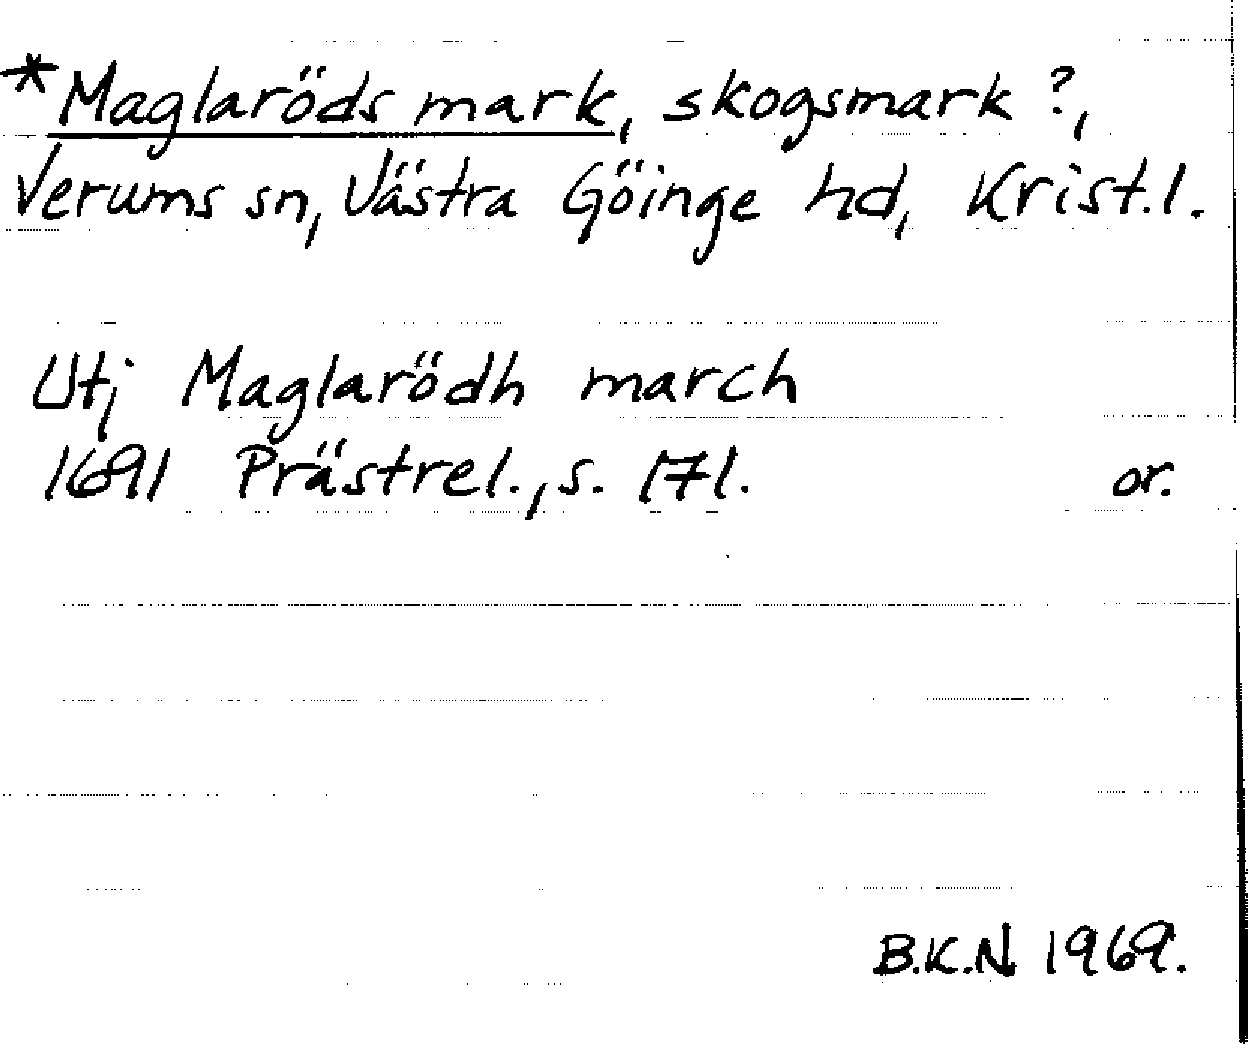 *Maglaröds mark, skogsmark ?,
Verums sn, Västra Göinge hd, Krist.l.
Utj Maglarödh march
1691 Prästrel., s. 171. or.
B.K.N. 1969.